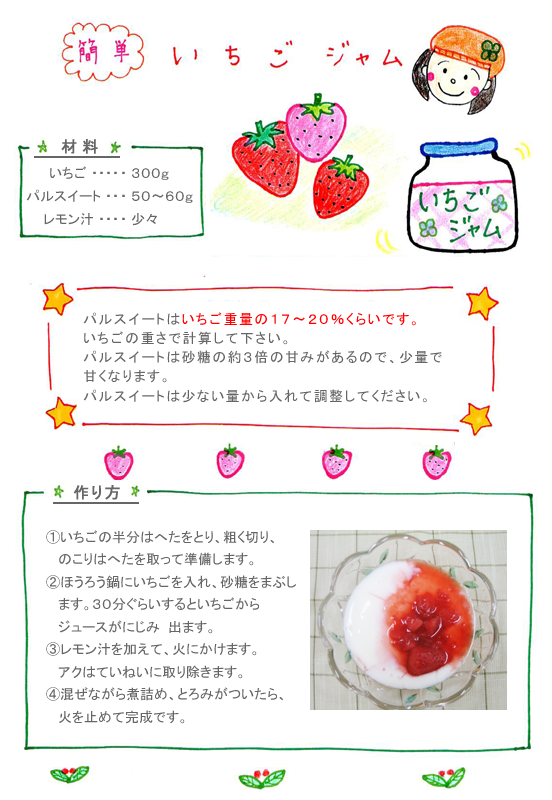 簡単
いちごジャム
材料
いちご・・・・・300g
パルスイート・・・50～60g
レモン汁・・・・少々
いちご
ジャム
パルスイートはいちご重量の17～20%くらいです。
いちごの重さで計算して下さい。
パルスイートは砂糖の約3倍の甘みがあるので、少量で
甘くなります。
パルスイートは少ない量から入れて調整してください。
作り方
①いちごの半分はへたをとり、粗く切り、
のこりはへたを取って準備します。
②ほうろう鍋にいちごを入れ、砂糖をまぶし
ます。30分ぐらいするといちごから
ジュースがにじみ 出ます。
③レモン汁を加えて、火にかけます。
アクはていねいに取り除きます。
④混ぜながら煮詰め、とろみがついたら、
火を止めて完成です。